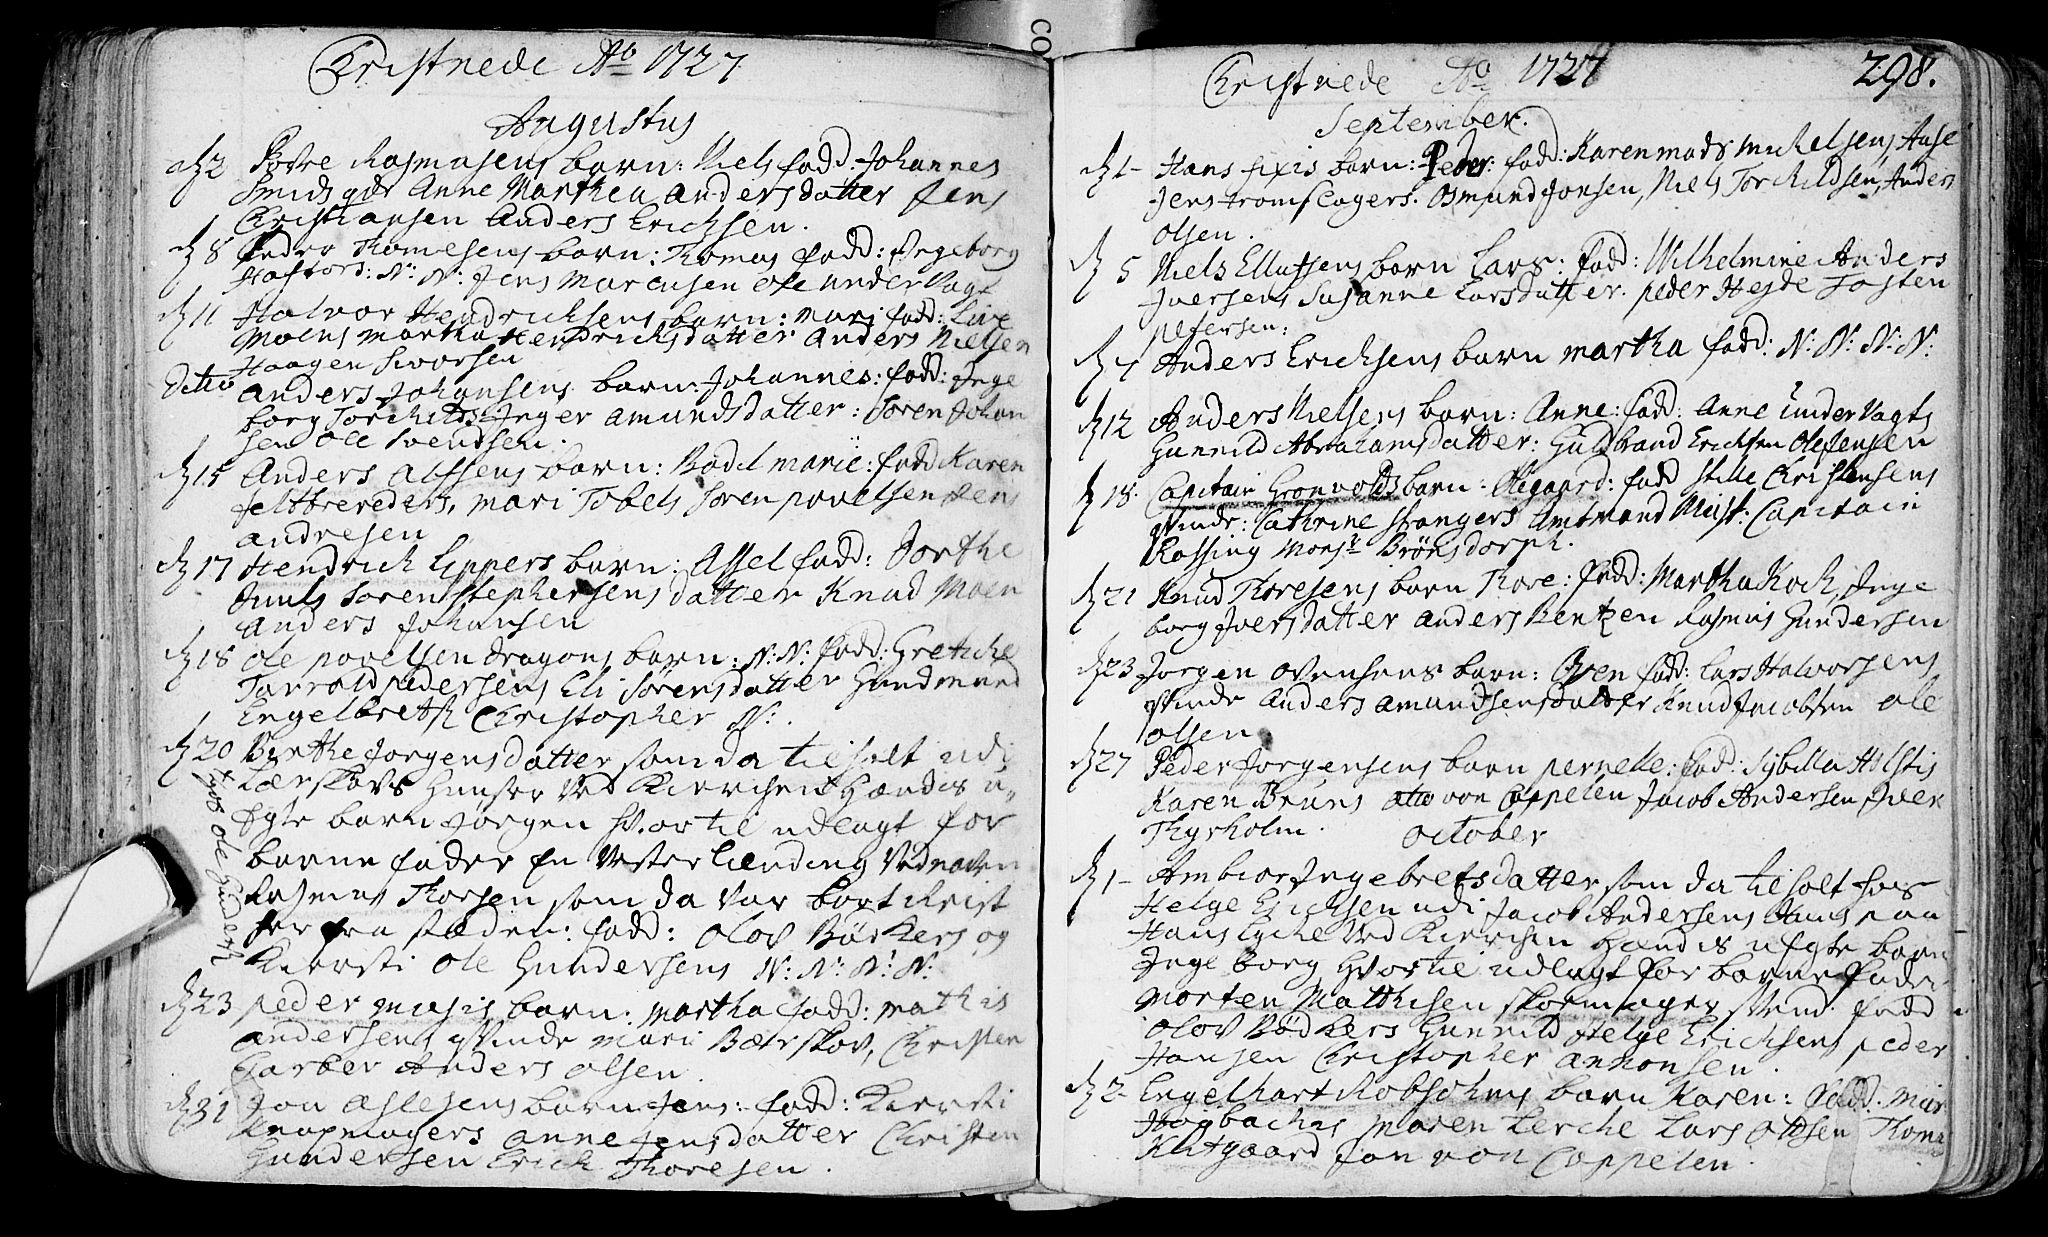 Christnede Ao 1727
Augustus
d 2 Povre Rasmusens barn: Niels fadd: Johannes
Smids gdr Anne Marthea Anders datter Jens
Christiansen Anders Ericksen.
d 8 Peder Thomesens barn: Thomas fadd: Ingeborg
Hafstord: N: N: Jens Marcusen Ole Under Vagt
d 11 Halvor Hendricksens barn: Mari fadd: Live
Moens Martha Hendricks datter Anders Nielsen
Haagen Siworsen
Ditto Anders Johansens barn: Johannes: fadd: Inge
borg Torchilds Inger Amunds datter: Søren Johan
sen Ole Svendsen.
d 15 Anders Alfsens barn: Bodel Marie: fadd Karen
Feltbereders, Mari Tobels Søren Povelsen Jens
Andresen
d 17 Hendrich Eppers barn: Assel fadd: Dorthe
Juuls Soren Stephensens datter Knud Moen
Anders Johansen
d 18 Ole Povelsen Dragons barn: N: N: fadd: Gretche
Tarrald Pedersens Eli Sörens datter Gundmund
Engelbretß Christopher N:
d 20 Birthe Jorgens datter som da tilholt udi
Lærskovs Huuser ved Kierchen Hændis u¬
Egte barn Jorgen hvortil udlagt for
barne fader En Vesterlænding ved navn
Rasmus Thorsen som da var bort Reist
her fra Stæden: fadd: Olov Bödkers og
Kiersti Ole Gundersens N: N: N: N:
hos Ole Gunderß
d 23 Peder Masis barn: Martha fadd: Mathis
Andersens qvinde Mari Bærskov, Christen
Garber Anders Olsen
d 31 Jon Aslesens barn Jens: fadd: Kiersti
Knapmagers Anne Jens datter Christen
Gundersen Erick Thoresen.
Christnede Ao 1727 298.
September.
d 1- Hans fixis barn: Peder: fadd: Karen Mads Mickelsens, Aase
Jens Tromslagers. Osmund Jonsen, Niels Torchildsen, Anders
Olsen.
d 5 Niels Ellufsens barn Lars: fadd: Wilhelmine Anders
Iversens Susanne Lars datter. Peder Hejde Tosten
Petersen:
d 7 Anders Ericksens barn Martha fadd: N: N: N: N:
d 12 Anders Nielsens barn: Anne: fadd: Anne Under Vagts
Gunnild Abrahams datter: Guldbrand Ericksen Ole Jensen
d 18. Capitain Gronvolds barn: Olegaard: fadd Stille Christensens
qvinde: Cathrine Stangers Amtmand Meist: Capitain
Rossing Monsr Brönsdorph.
d 21 Knud Thoresens barn Thore: fadd: Martha Koch, Inge
borg Ivers datter Anders Bentzen Rasmus Gundersen
d 23 Jorgen Ovensens barn: Oven fadd: Lars Halvorsens
qvinde Anders Amundsens datter Knud Jacobsen Ole
Olsen
d 27 Peder Jorgensens barn Pernelle: fad: Sybilla Holstis
Karen Bruns Otto von Cappelen Jacob Andersen Iver
Thyrholm.
October
d 1- Ambior Ingebrets datter som da tilholt hos
Helge Ericksen udi Jacob Andersens Huus paa
Hans Lyche ved Kierchen Hændis uEgte barn
Ingeborg hvortil udlagt for barne fader
Morten Mathisen Skoemager Svend. fadd
Olov Bödkers Gunnild Helge Ericksens Peder
Hansen Christopher Annonsen.
d 2- Engelhart Robsohns barn Karen: fadd. Mar
Hagbachis Maren Lerche Lars Ottsen Thoma
Klitgaard Jan von Cappelen.